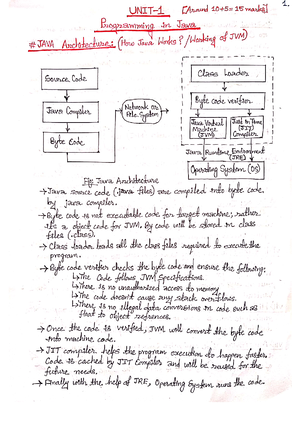 1.
UNIT-1 [Around 10+5=15 marks]
Programming in Java
# JAVA Architecture: (How Java Works? / Working of JVM)
Source Code
Java Compiler
Byte Code
Network or
File System
Class Loader
Byte code verifier
Java Virtual
Machine
(JVM)
Just In Time
(JIT)
Compiler
Java Runtime Environment
(JRE)
Operating System (OS)
Fig: Java Architecture
→ Java source code (.java files) are compiled into byte code
by java compiler.
→ Byte code is not executable code for target machine; rather
it's a object code for JVM. By code will be stored in class
files (.class).
→ Class loader loads all the class files required to execute the
program.
→ Byte code verifier checks the byte code and ensure the following:
↳ The Code follows JVM specifications.
↳ There is no unauthorized access to memory.
↳ The code doesn't cause any stack overflows.
↳ There is no illegal data conversions in code such as
float to object references.
→ Once the code is verified, JVM will convert the byte code
into machine code.
→ JIT compiler helps the program execution to happen faster.
Code is cached by JIT Compiler and will be reused for the
future needs.
→ Finally with the help of JRE, Operating System runs the code.